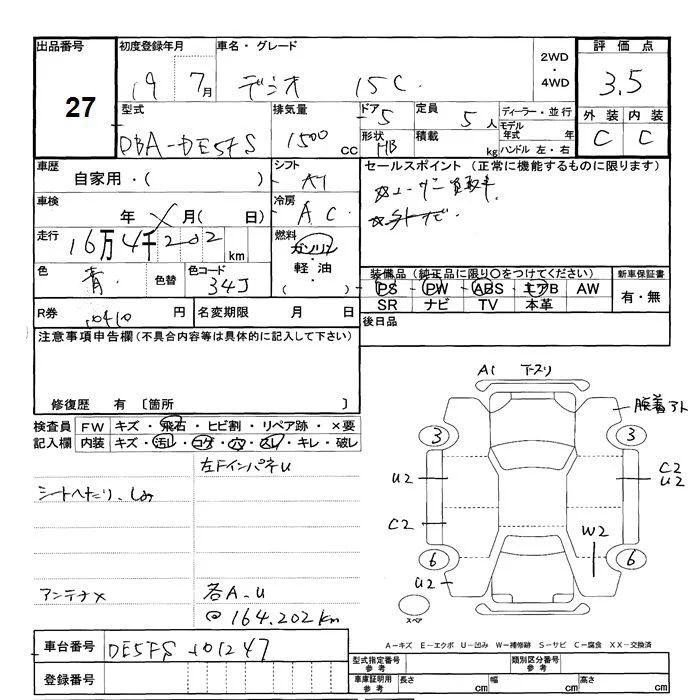 出品番号 初度登録年月 車名・グレード 2WD・4WD 評価点
27 19 7月 デミオ 15C 3.5
型式 排気量 ドア 5 定員 5人 ディーラー・並行 外装 内装
DBA-DE5FS 1500cc 形状 HB 積載 kg モデル年式 年 ハンドル 左・右 C C
車歴 シフト セールスポイント（正常に機能するものに限ります）
自家用・（ ） AT ☆ユーザー買取車
車検 冷房 ☆外ナビ
年 × 月（ 日） A.C
走行 燃料
16万4千202km ガソリン・軽油・（ ）
色 色替 色コード 装備品（純正品に限り○をつけてください） 新車保証書
青 34J PS PW ABS エアB AW 有・無
SR ナビ TV 本革
R券 10410円 名変期限 月 日 後日品
注意事項申告欄（不具合内容等は具体的に記入して下さい）
修復歴 有 〔箇所 〕
検査員記入欄 FW キズ・飛石・ヒビ割・リペア跡・×要
内装 キズ・汚レ・コゲ・穴・スレ・キレ・破レ
左FインパネU
シートヘたり、しみ
アンテナ× 各A.U
@164.202km
A1 下スリ
脱着アト
3 3
U2 C2
U2
C2 W2
6 6
U2
スペア
A－キズ E－エクボ U－凹み W－補修跡 S－サビ C－腐食 XX－交換済
車台番号 DE5FS 101247
登録番号
型式指定番号 参考 類別区分番号 参考
車庫証明用 参考 長さ cm 幅 cm 高さ cm